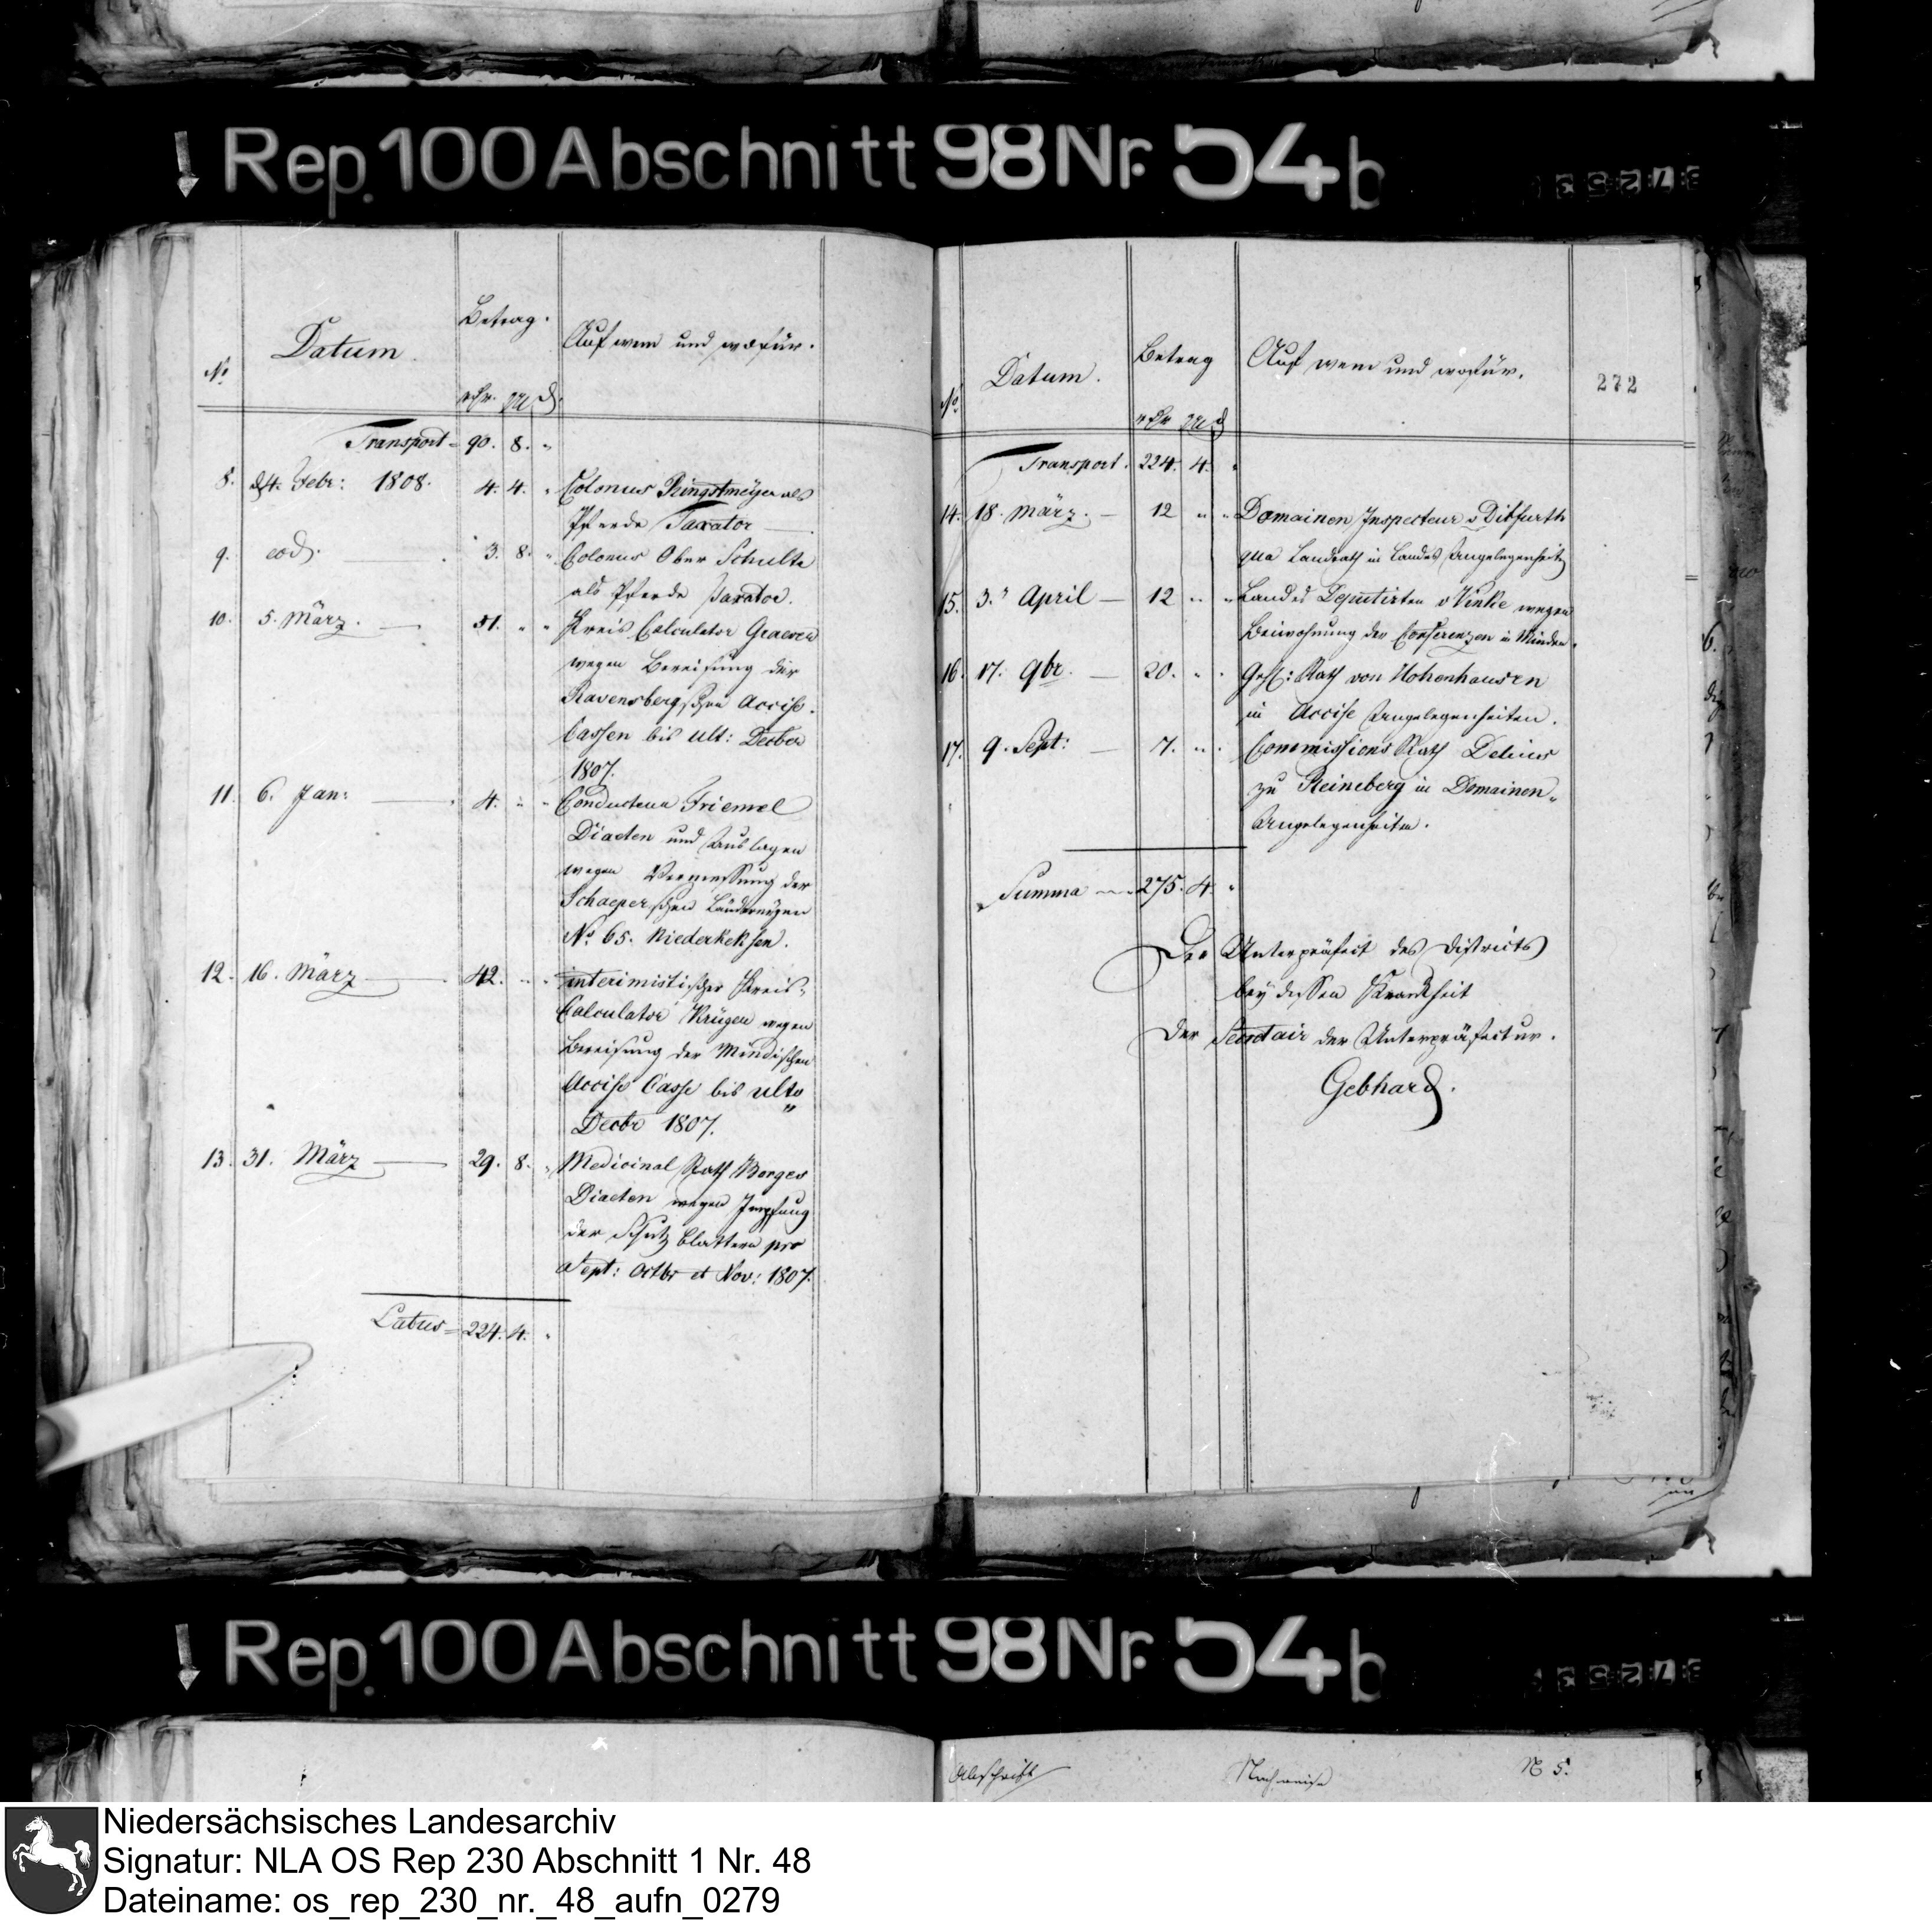 Rep. 100 Abschnitt 98 Nr. 54 b
No
Datum.
Betrag.
Auf wem und wofür.
rthr. ggr d.
Transport = 90. 8. "
8. 24. Febr: 1808. 4. 4. " Colonus Ringstmeyer als
Pferde Taxator
9. eod. 3. 8. " Colonus Ober Schulte
als Pferde Taxator.
10. 5. März. — 51. " " Kreis Calculator Graeven
wegen Bereisung der
Ravensbergschen Accise-
Cassen bis ult: Decber
1807.
11. 6. Jan: — 4. " " Conducteur Friemel
Diaeten und Auslagen
wegen Vermessung der
Schaeperschen Ländereyen
No 65. Niederbeksen.
12. 16. März — 42. " " interimistischer Kreis-
Calculator Krüger wegen
Bereisung der Mindischen
Accise Casse bis ulto
Decbr 1807.
13. 31. März — 29. 8. " Medicinal Rath Borges
Diaeten wegen Impfung
der Schutz blattern pro
Sept: Octbr et Nov: 1807.
Latus = 224. 4. "
272
No
Datum.
Betrag
Auf wem und wofür.
rthr ggr d
Transport. 224. 4. "
14. 18. März. — 12 " " Domainen Inspecteur v Ditfurth
qua Landrath in Landes Angelegenheit
15. 3. April — 12 " " Landes Deputirten v Vinke wegen
Beiwohnung der Conferenzen in Minden.
16. 17. 9br. — 20. " " Geh: Rath von Hohenhausen
in Accise Angelegenheiten.
17. 9. Sept: — 7. " " Commissions Rath Delius
zu Reineberg in Domainen-
Angelegenheiten.
Summa 275. 4. "
Der Unterpräfect des Districts
bey dessen Krankheit
Der Secretair der Unterpräfectur.
Gebhard.
Rep. 100 Abschnitt 98 Nr. 54 b
Abschrift
Nachweise
N 5.
Niedersächsisches Landesarchiv
Signatur: NLA OS Rep 230 Abschnitt 1 Nr. 48
Dateiname: os_rep_230_nr._48_aufn_0279